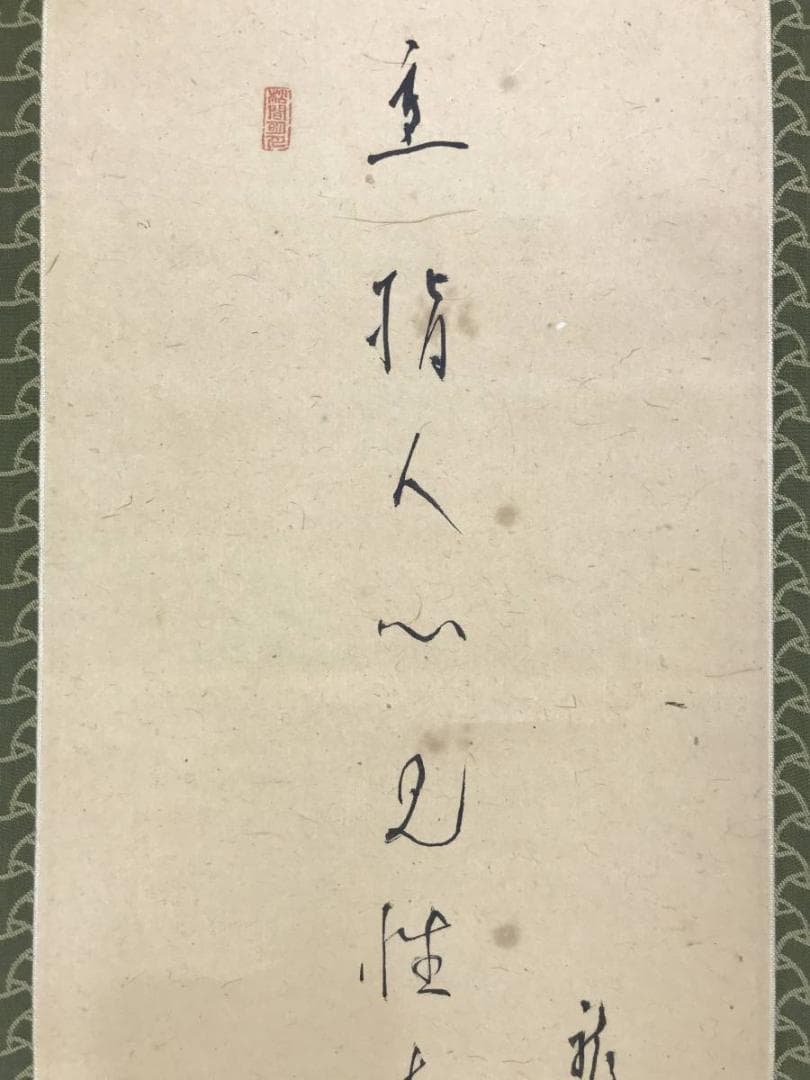 直指人心見性